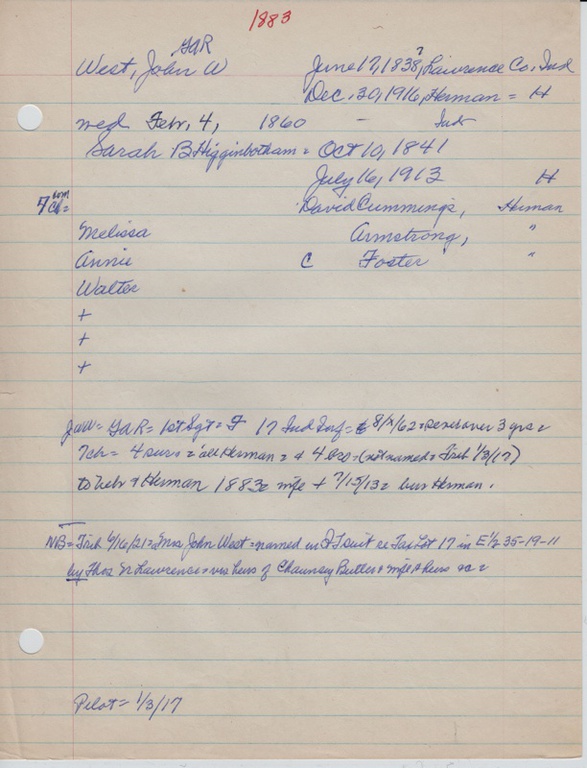 1883
GAR
West, John W June 17, 1838, ? Lawrence Co. Ind
Dec. 30, 1916, Herman = H
med Febr, 4, 1860 - Ind
Sarah B Higginbotham = Oct 10, 1841
July 16, 1913 H
7 ch = David Cummings, Herman
Melissa Armstrong, "
Annie C Foster "
Walter
+
+
+
JWW = GAR = 1st Sgt = F 17 Ind Inf = 8/ /62 = served over 3 yrs =
7ch = 4 surv = all Herman = + 4 bros = (not named = Trib 1/3/17)
to Nebr + Herman 1883 = wife + 7/15/13 = bur Herman.
NB = Trib 6/16/21 = Mrs John West = named in QT suit re Tax Lot 17 in E½ 35-19-11
by Thos Lawrence = vs heirs of Chauncey Butler + wife + heirs =
Pilot = 1/3/17